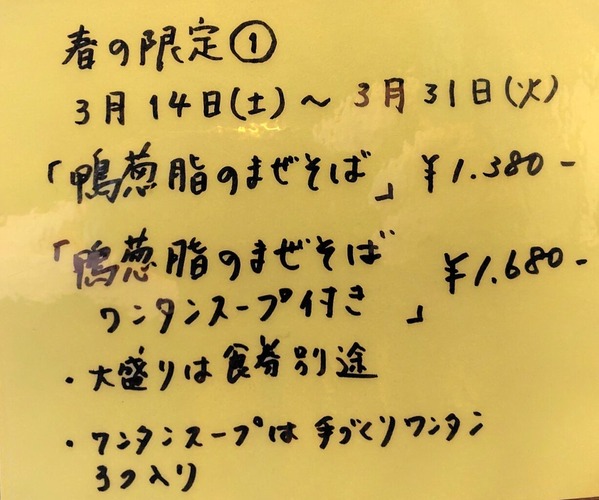 春の限定①
3月14日(土)～3月31日(火)
「鴨葱脂のまぜそば」¥1.380-
「鴨葱脂のまぜそば
ワンタンスープ付き」¥1,680-
・大盛りは食券別途
・ワンタンスープは手づくりワンタン
3つ入り